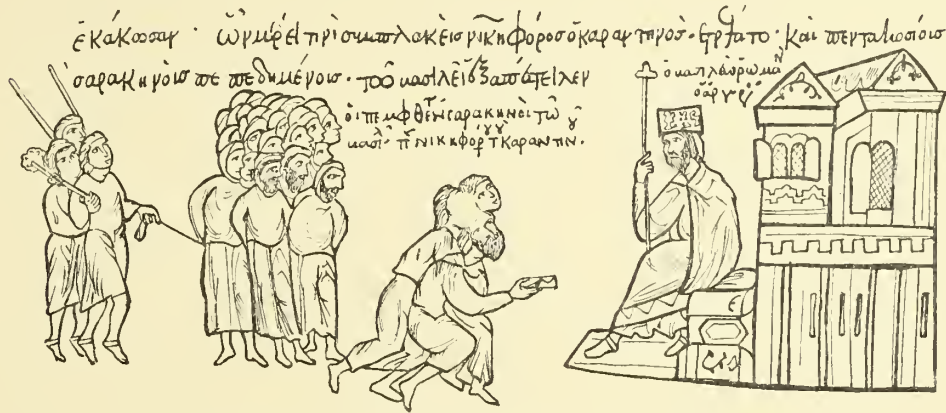 ἐκάκωσαν· ὧν μιρεῖ τινὶ συμπλακεὶς νικηφόροσ ὁ καραντηνόσ· ἐτρέψατο· καὶ πεντακοσίοις
σαρακηνοῖσ πεπεδημένοισ· τῷ βασιλεῖ ἐξαπέστειλεν
οἱ πεμφθέντ σαρακηνοὶ τῷ
βασιλ π νικηφόρ τ καραντην.
ὁ βασιλεὺσ ῥωμαν
ὁ ἀργυρ